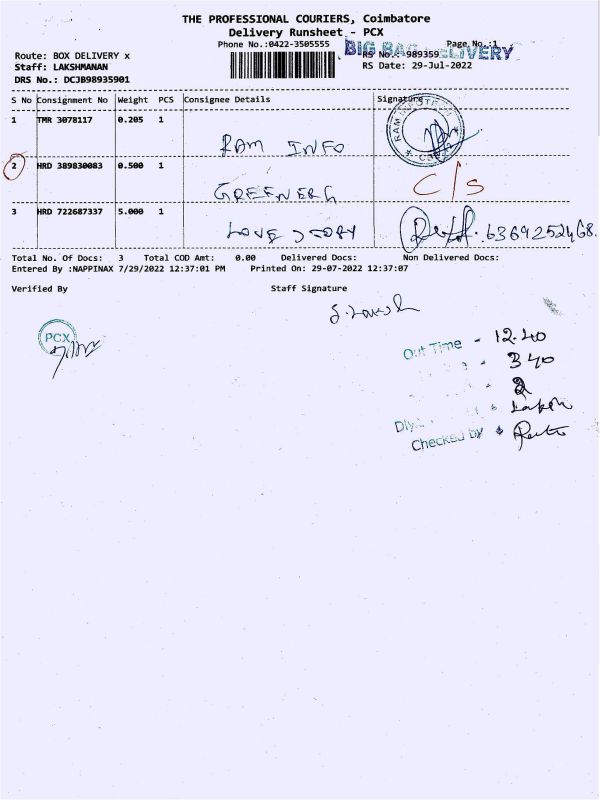 THE PROFESSIONAL COURIERS, Coimbatore
Delivery Runsheet - PCX
Phone No.:0422-3505555 Page No.:1
BIG BAG DELIVERY
Route: BOX DELIVERY x RS No.: 989359
Staff: LAKSHMANAN RS Date: 29-Jul-2022
DRS No.: DCJB98935901
S No Consignment No Weight PCS Consignee Details Signature
1 TMR 3078117 0.205 1
RAM INFO
2 HRD 389830083 0.500 1 C/s
GREENERG
3 HRD 722687337 5.000 1
LOVE STORY 6369252468.
Total No. Of Docs: 3 Total COD Amt: 0.00 Delivered Docs: Non Delivered Docs:
Entered By :NAPPINAX 7/29/2022 12:37:01 PM Printed On: 29-07-2022 12:37:07
Verified By Staff Signature
PCX
Out Time - 12.40
340
2
Checked by